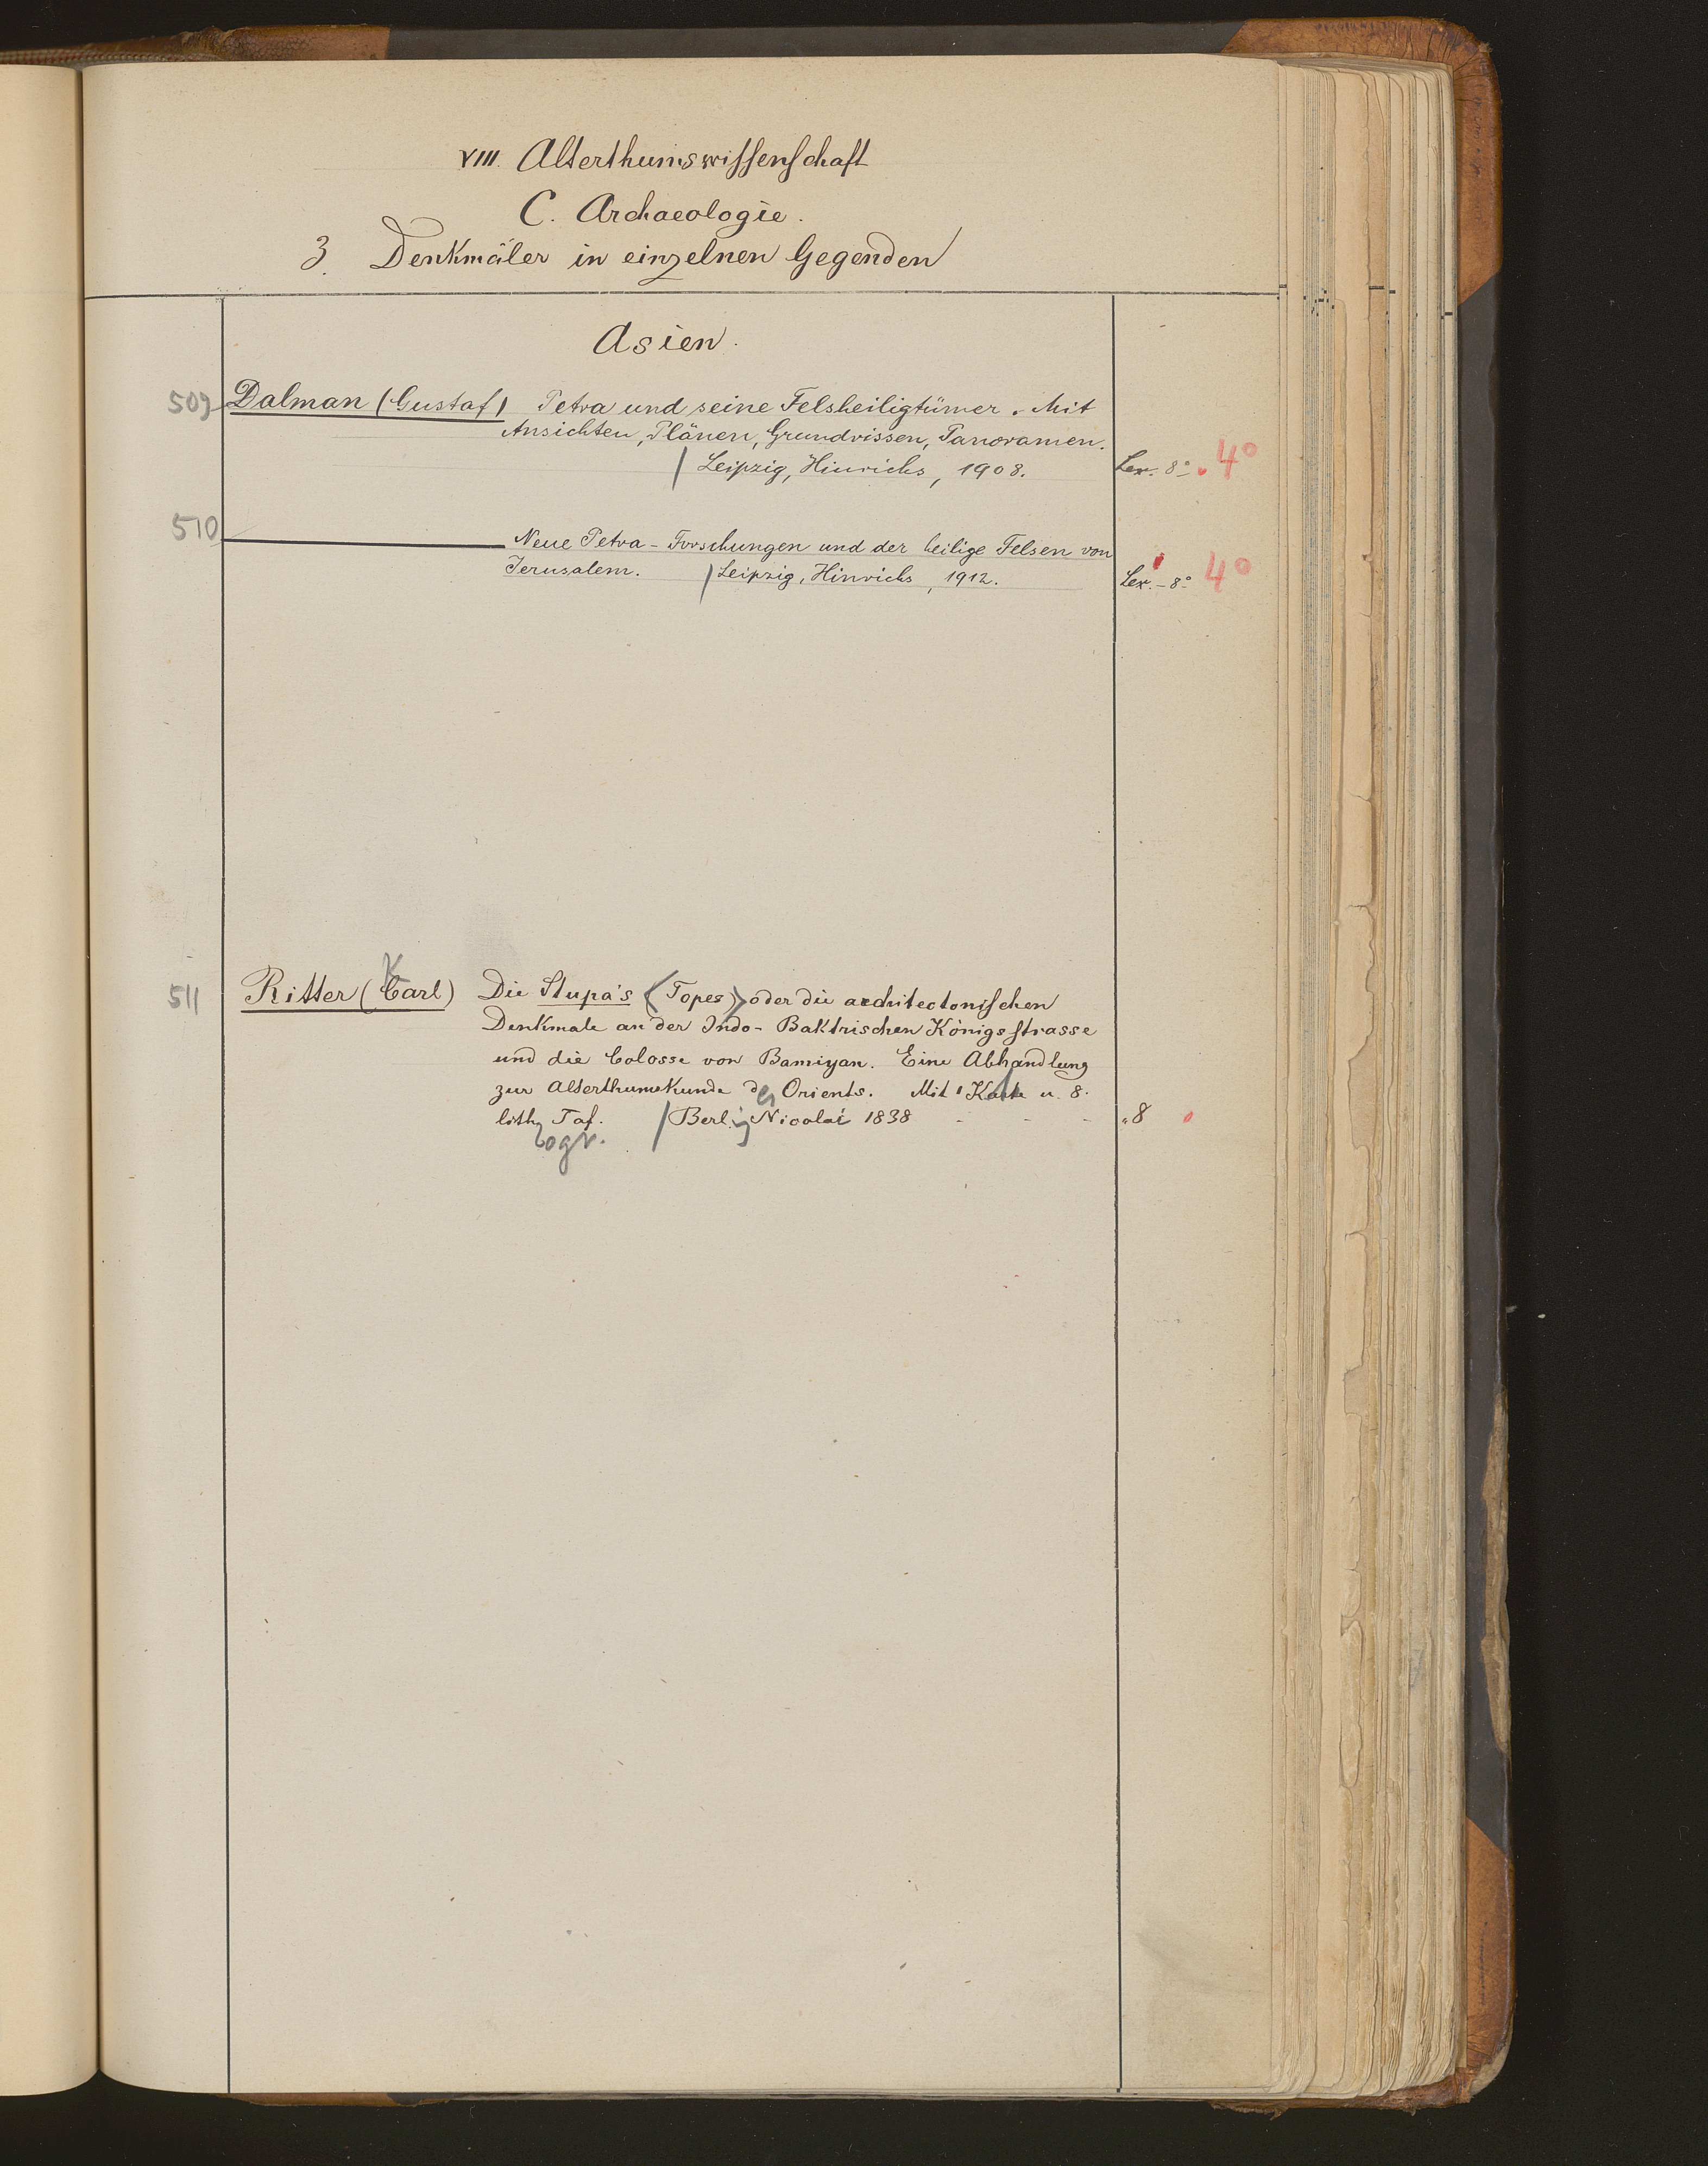 VIII. Alterthumswissenschaft
C. Archaeologie.
3. Denkmäler in einzelnen Gegenden
Asien.
509 Dalman (Gustaf) Petra und seine Felsheiligtümer. Mit
Ansichten, Plänen, Grundrissen, Panoramen.
/ Leipzig, Hinrichs, 1908. Lex. 8° 4°
510 ——— Neue Petra-Forschungen und der heilige Felsen von
Jerusalem. / Leipzig, Hinrichs, 1912. Lex.-8° 4°
K
511 Ritter (Carl) Die Stupa's (Topes) oder die architectonischen
Denkmale an der Indo-Baktrischen Königsstrasse
und die Colosse von Bamiyan. Eine Abhandlung
zur Alterthumskunde des Orients. Mit 1 Karte u. 8.
lith Taf. / Berl. Nicolai 1838 - - - 8
ogr.